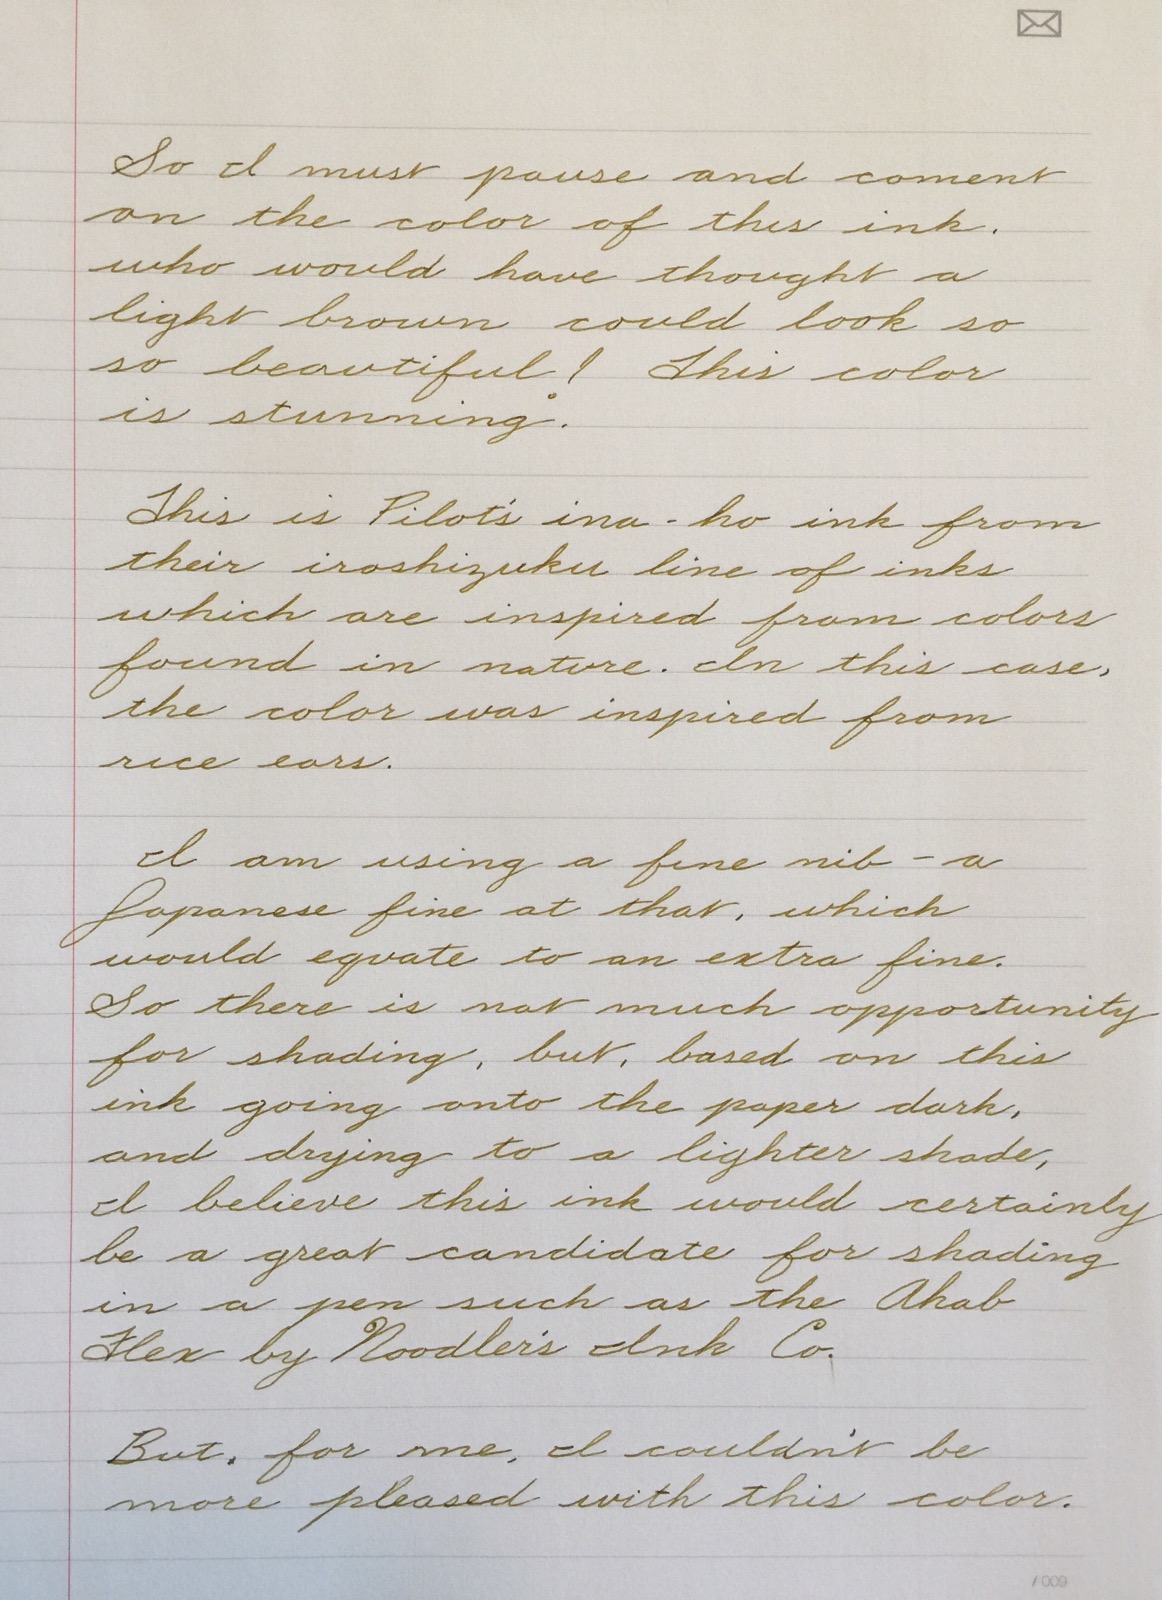 So I must pause and coment
on the color of this ink.
who would have thought a
light brown could look so
so beautiful! This color
is stunning.
This is Pilot's ina-ho ink from
their iroshizuku line of inks
which are inspired from colors
found in nature. In this case,
the color was inspired from
rice ears.
I am using a fine nib - a
Japanese fine at that, which
would equate to an extra fine.
So there is not much opportunity
for shading, but, based on this
ink going onto the paper dark,
and drying to a lighter shade,
I believe this ink would certainly
be a great candidate for shading
in a pen such as the Ahab
Flex by Noodler's Ink Co.
But, for me, I couldn't be
more pleased with this color.
/009